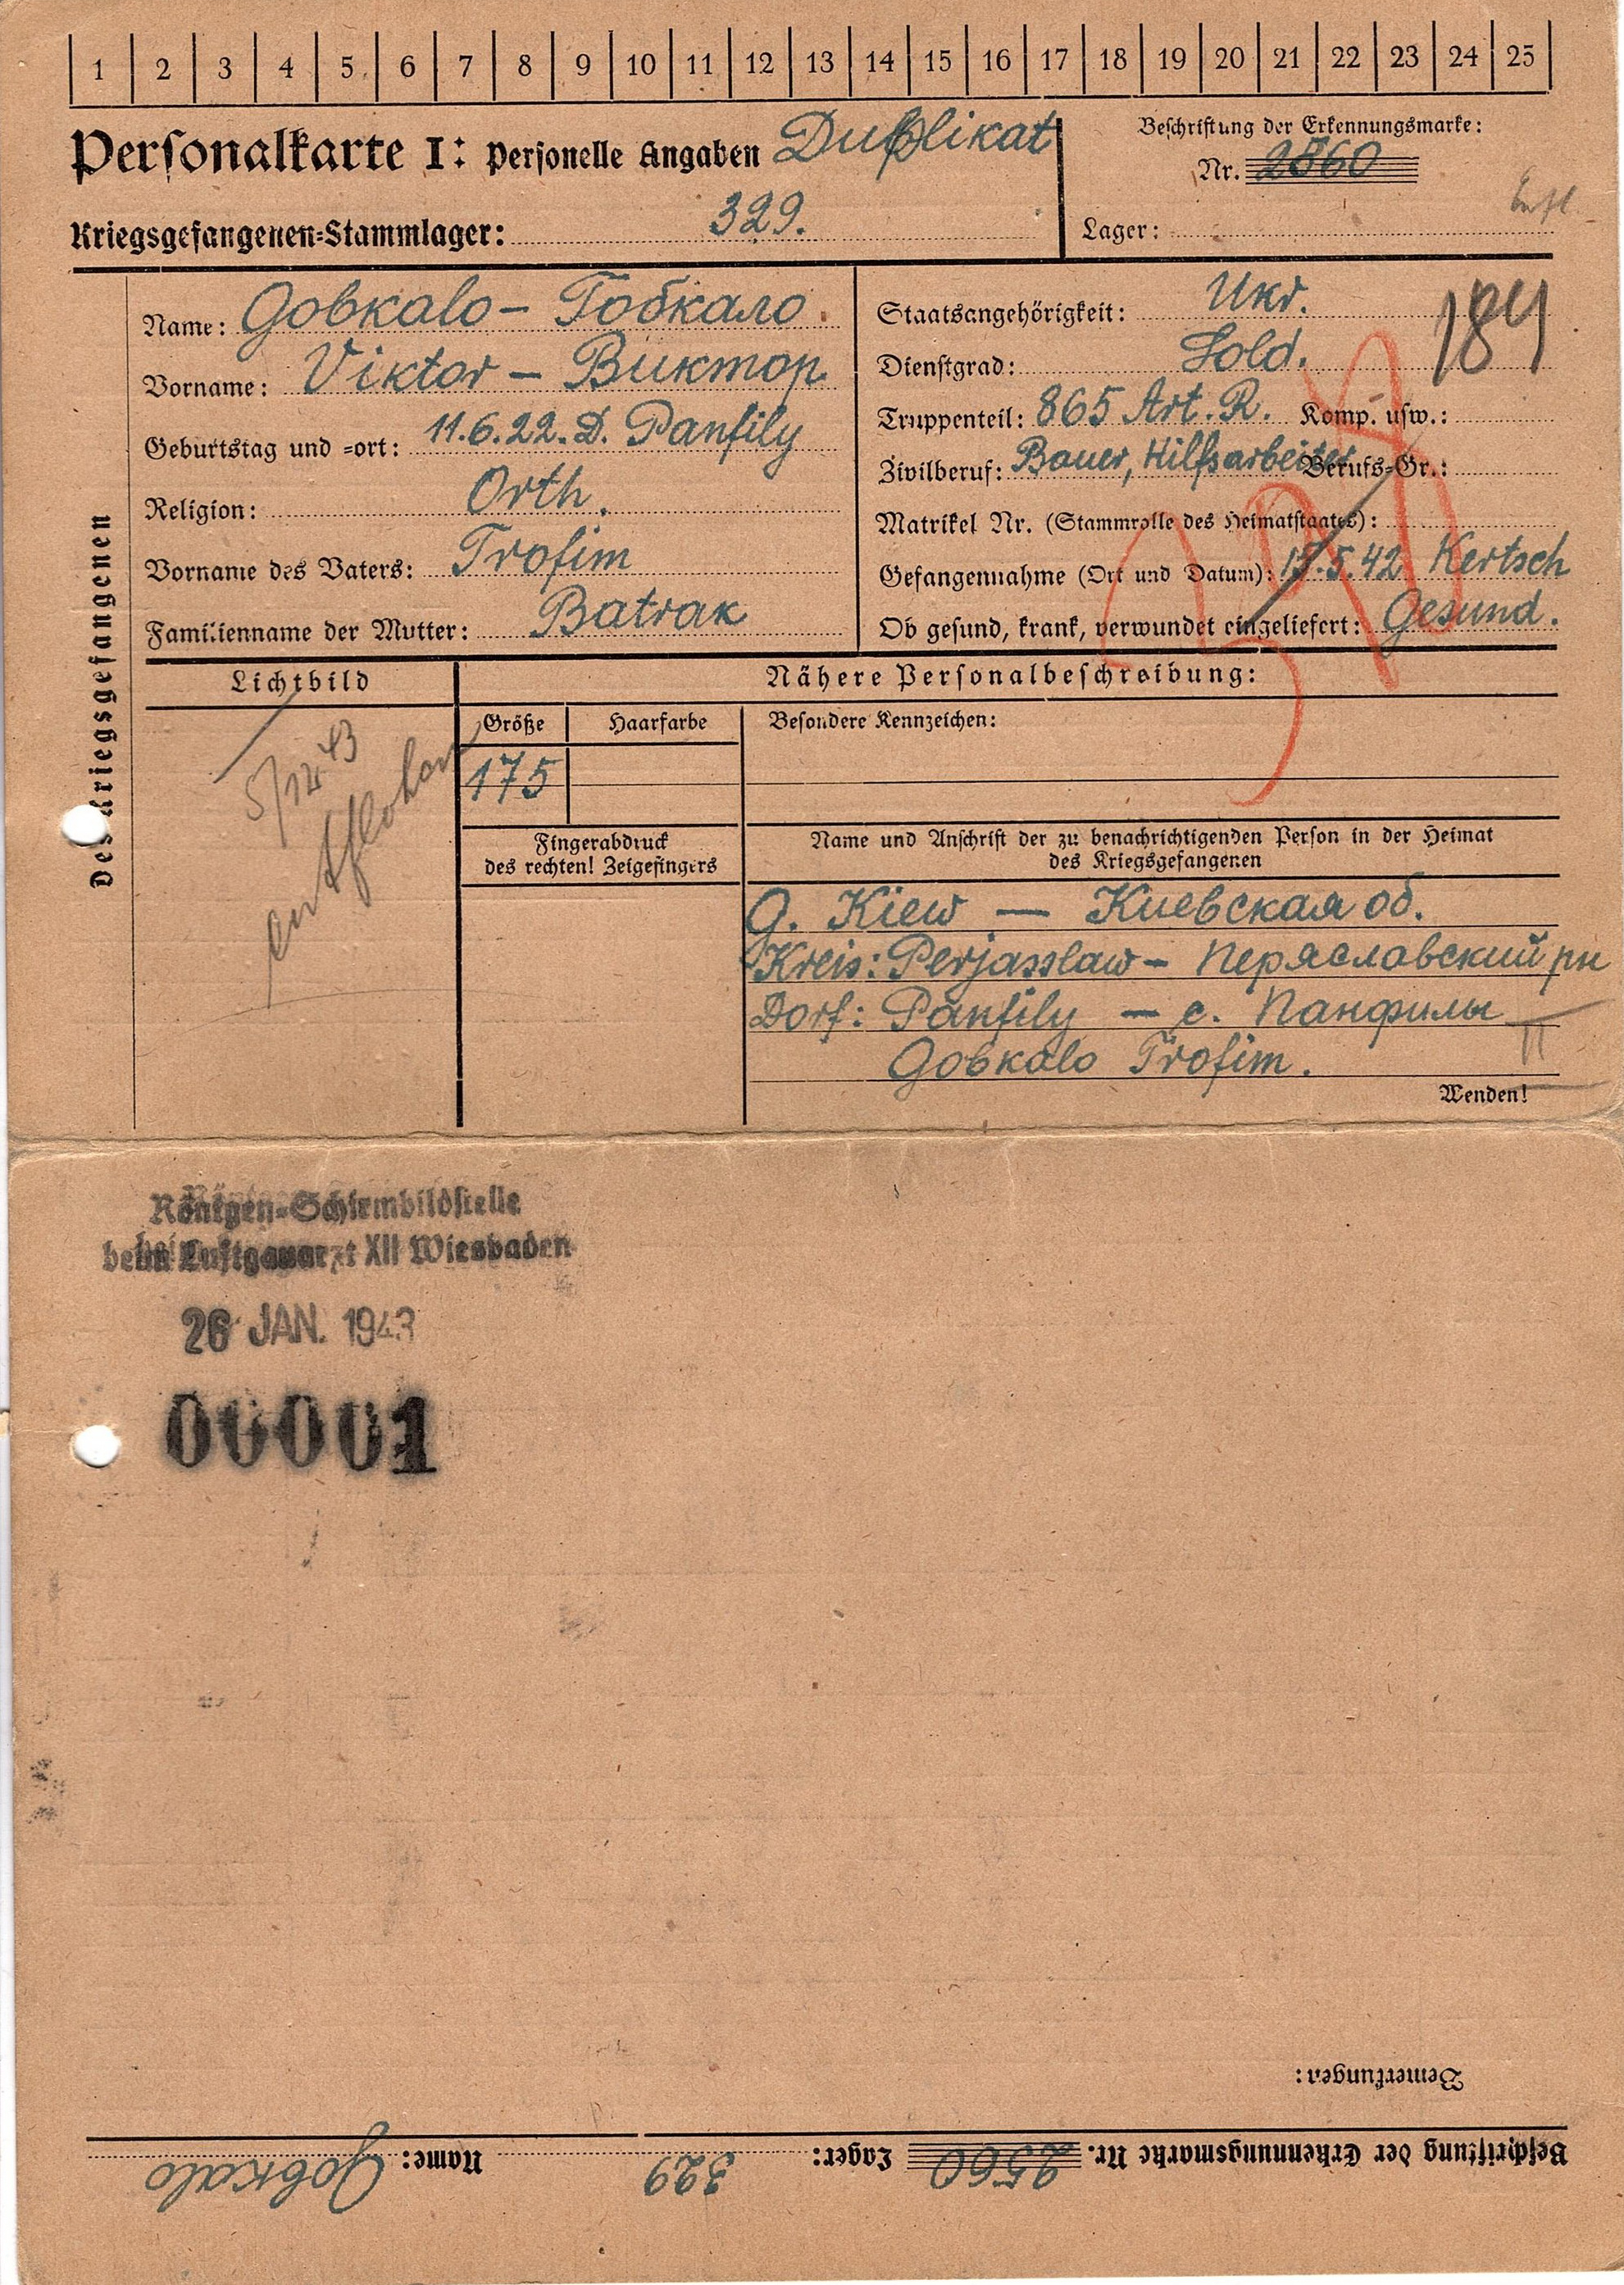 1 2 3 4 5 6 7 8 9 10 11 12 13 14 15 16 17 18 19 20 21 22 23 24 25
Personalkarte I: Personelle Angaben Duplikat
Beschriftung der Erkennungsmarke:
Nr. 2560
Kriegsgefangenen-Stammlager: 329.
Lager:
Des Kriegsgefangenen
Name: Gobkalo – Гобкало.
Vorname: Viktor – Виктор
Geburtstag und -ort: 11.6.22. D. Panfily
Religion: Orth.
Vorname des Vaters: Trofim
Familienname der Mutter: Batrak
Staatsangehörigkeit: Ukr.
184
Dienstgrad: Sold.
Truppenteil: 865 Art. R. Komp. usw.:
Zivilberuf: Bauer, Hilfsarbeiter Berufs-Gr.:
Matrikel Nr. (Stammrolle des Heimatstaates):
Gefangennahme (Ort und Datum): 15.5.42 Kertsch
Ob gesund, krank, verwundet eingeliefert: Gesund.
Lichtbild
5/12 43
entflohen
Nähere Personalbeschreibung:
Größe Haarfarbe Besondere Kennzeichen:
175
Fingerabdruck
des rechten! Zeigefingers
Name und Anschrift der zu benachrichtigenden Person in der Heimat
des Kriegsgefangenen
G. Kiew — Киевская об.
Kreis: Perjasslaw – Перяславский рн
Dorf: Panfily — с. Панфилы
Gobkalo Trofim.
Wenden!
Röntgen-Schirmbildstelle
beim Luftgauarzt XII Wiesbaden
26 JAN. 1943
00001
Bemerkungen:
Beschriftung der Erkennungsmarke Nr. 2560 Lager: 329 Name: Gobkalo